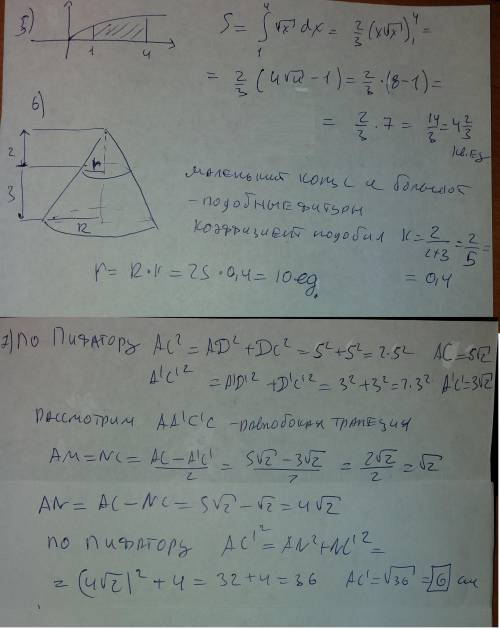 5)
1 4
S = ∫₁⁴ √x dx = 2/3 (x√x)|₁⁴ =
= 2/3 (4√4 - 1) = 2/3 · (8-1) =
= 2/3 · 7 = 14/3 = 4 2/3
кв.ед
6)
2
3
r
R
маленький конус и большой
- подобные фигуры
коэффициент подобия K = 2/(2+3) = 2/5 =
= 0,4
r = R·K = 25 · 0,4 = 10 ед.
7) по Пифагору AC² = AD² + DC² = 5² + 5² = 2·5² AC = 5√2
A'C'² = A'D'² + D'C'² = 3² + 3² = 2·3² A'C' = 3√2
рассмотрим AA'C'C - равнобокая трапеция
AM = NC = (AC - A'C')/2 = (5√2 - 3√2)/2 = 2√2/2 = √2
AN = AC - NC = 5√2 - √2 = 4√2
по пифагору AC'² = AN² + NC'² =
= (4√2)² + 4 = 32 + 4 = 36 AC' = √36 = 6 см